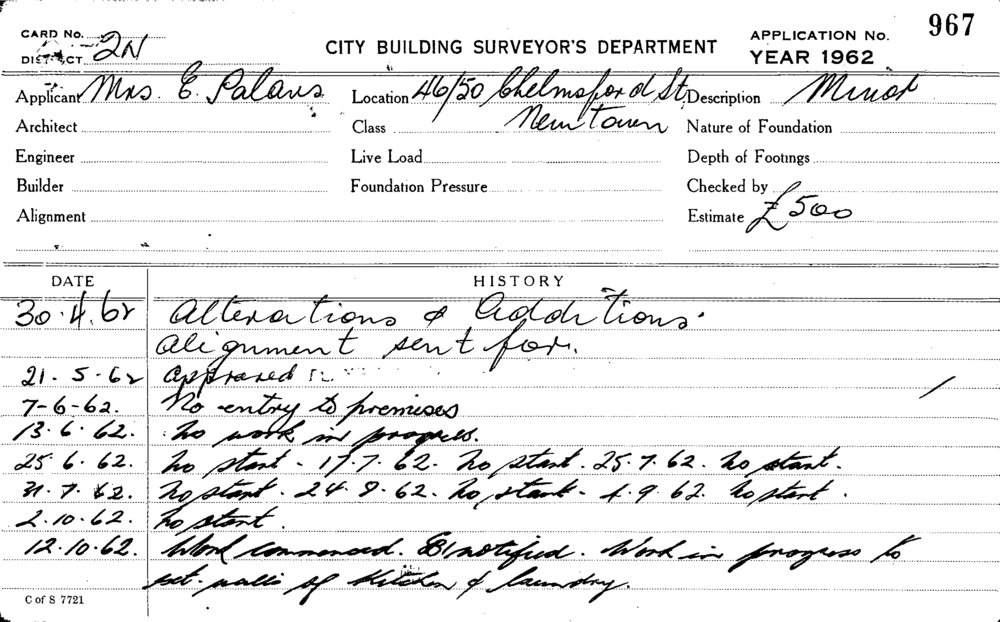 CARD No.
DISTRICT 2N
CITY BUILDING SURVEYOR'S DEPARTMENT
APPLICATION No. 967
YEAR 1962
Applicant Mrs. E. Palaus Location 46/50 Chelmsford St. Description Minor
Architect Class Newtown Nature of Foundation
Engineer Live Load Depth of Footings
Builder Foundation Pressure Checked by
Alignment Estimate £500
DATE HISTORY
30.4.62 Alterations & Additions.
Alignment sent for.
21.5.62 Approved
7-6-62. No entry to premises
13.6.62. No work in progress.
25.6.62. No start - 17.7.62. No start. 25.7.62. No start.
31.7.62. No start. 24.8.62. No start - 4.9.62. No start.
2.10.62. No start.
12.10.62. Work commenced. notified. Work in progress to
ext. walls of kitchen & laundry.
C of S 7721